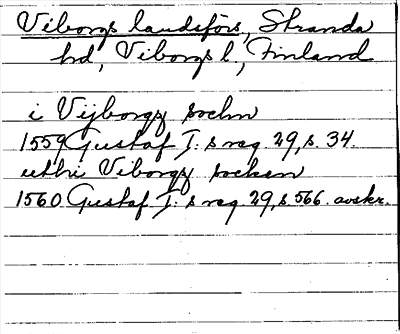 Viborgs landsförs, Stranda
hd, Viborgs l, Finland
i Vijborgz sochn
1559 Gustaf I:s reg. 29, s. 34.
uthi Viborgz sochen
1560 Gustaf I:s reg 29, s 566. avskr.